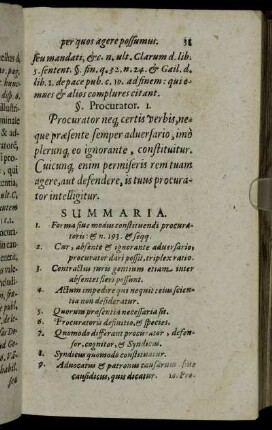 per quos agere possumus. 38
seu mandati, &c. n. ult. Clarum d. lib.
5. sentent. §. fin. q. 32. n. 24. & Gail. d.
lib. 1. de pace pub. c. 10. ad finem: qui e-
mues & alios complures citant.
§. Procurator. 1.
Procurator neq, certis verbis, ne-
que præsente semper adversario, imò
plerunq, eo ignorante, constituitur.
Cuicunq, enim permiseris rem tuam
agere, aut defendere, is tuus procura-
tor intelligitur.
SUMMARIA.
1. Forma sive modus constituendi procura-
toris: & n. 193. & seqq.
2. Cur, absente & ignorante adversario,
procurator dari possit, triplex ratio.
3. Contractus juris gentium etiam inter
absentes fieri possunt.
4. Actum impedire qui nequit: ejus scien-
tia non desideratur.
5. Quorum præsentia necessaria sit.
6. Procuratoris definitio, & species.
7. Quomodo differant procurator, defen-
sor, cognitor, & Syndicus.
8. Syndicus quomodo constituatur.
9. Advocatus & patronus causarum sive
causidicus, quis dicatur. 10. Pro-